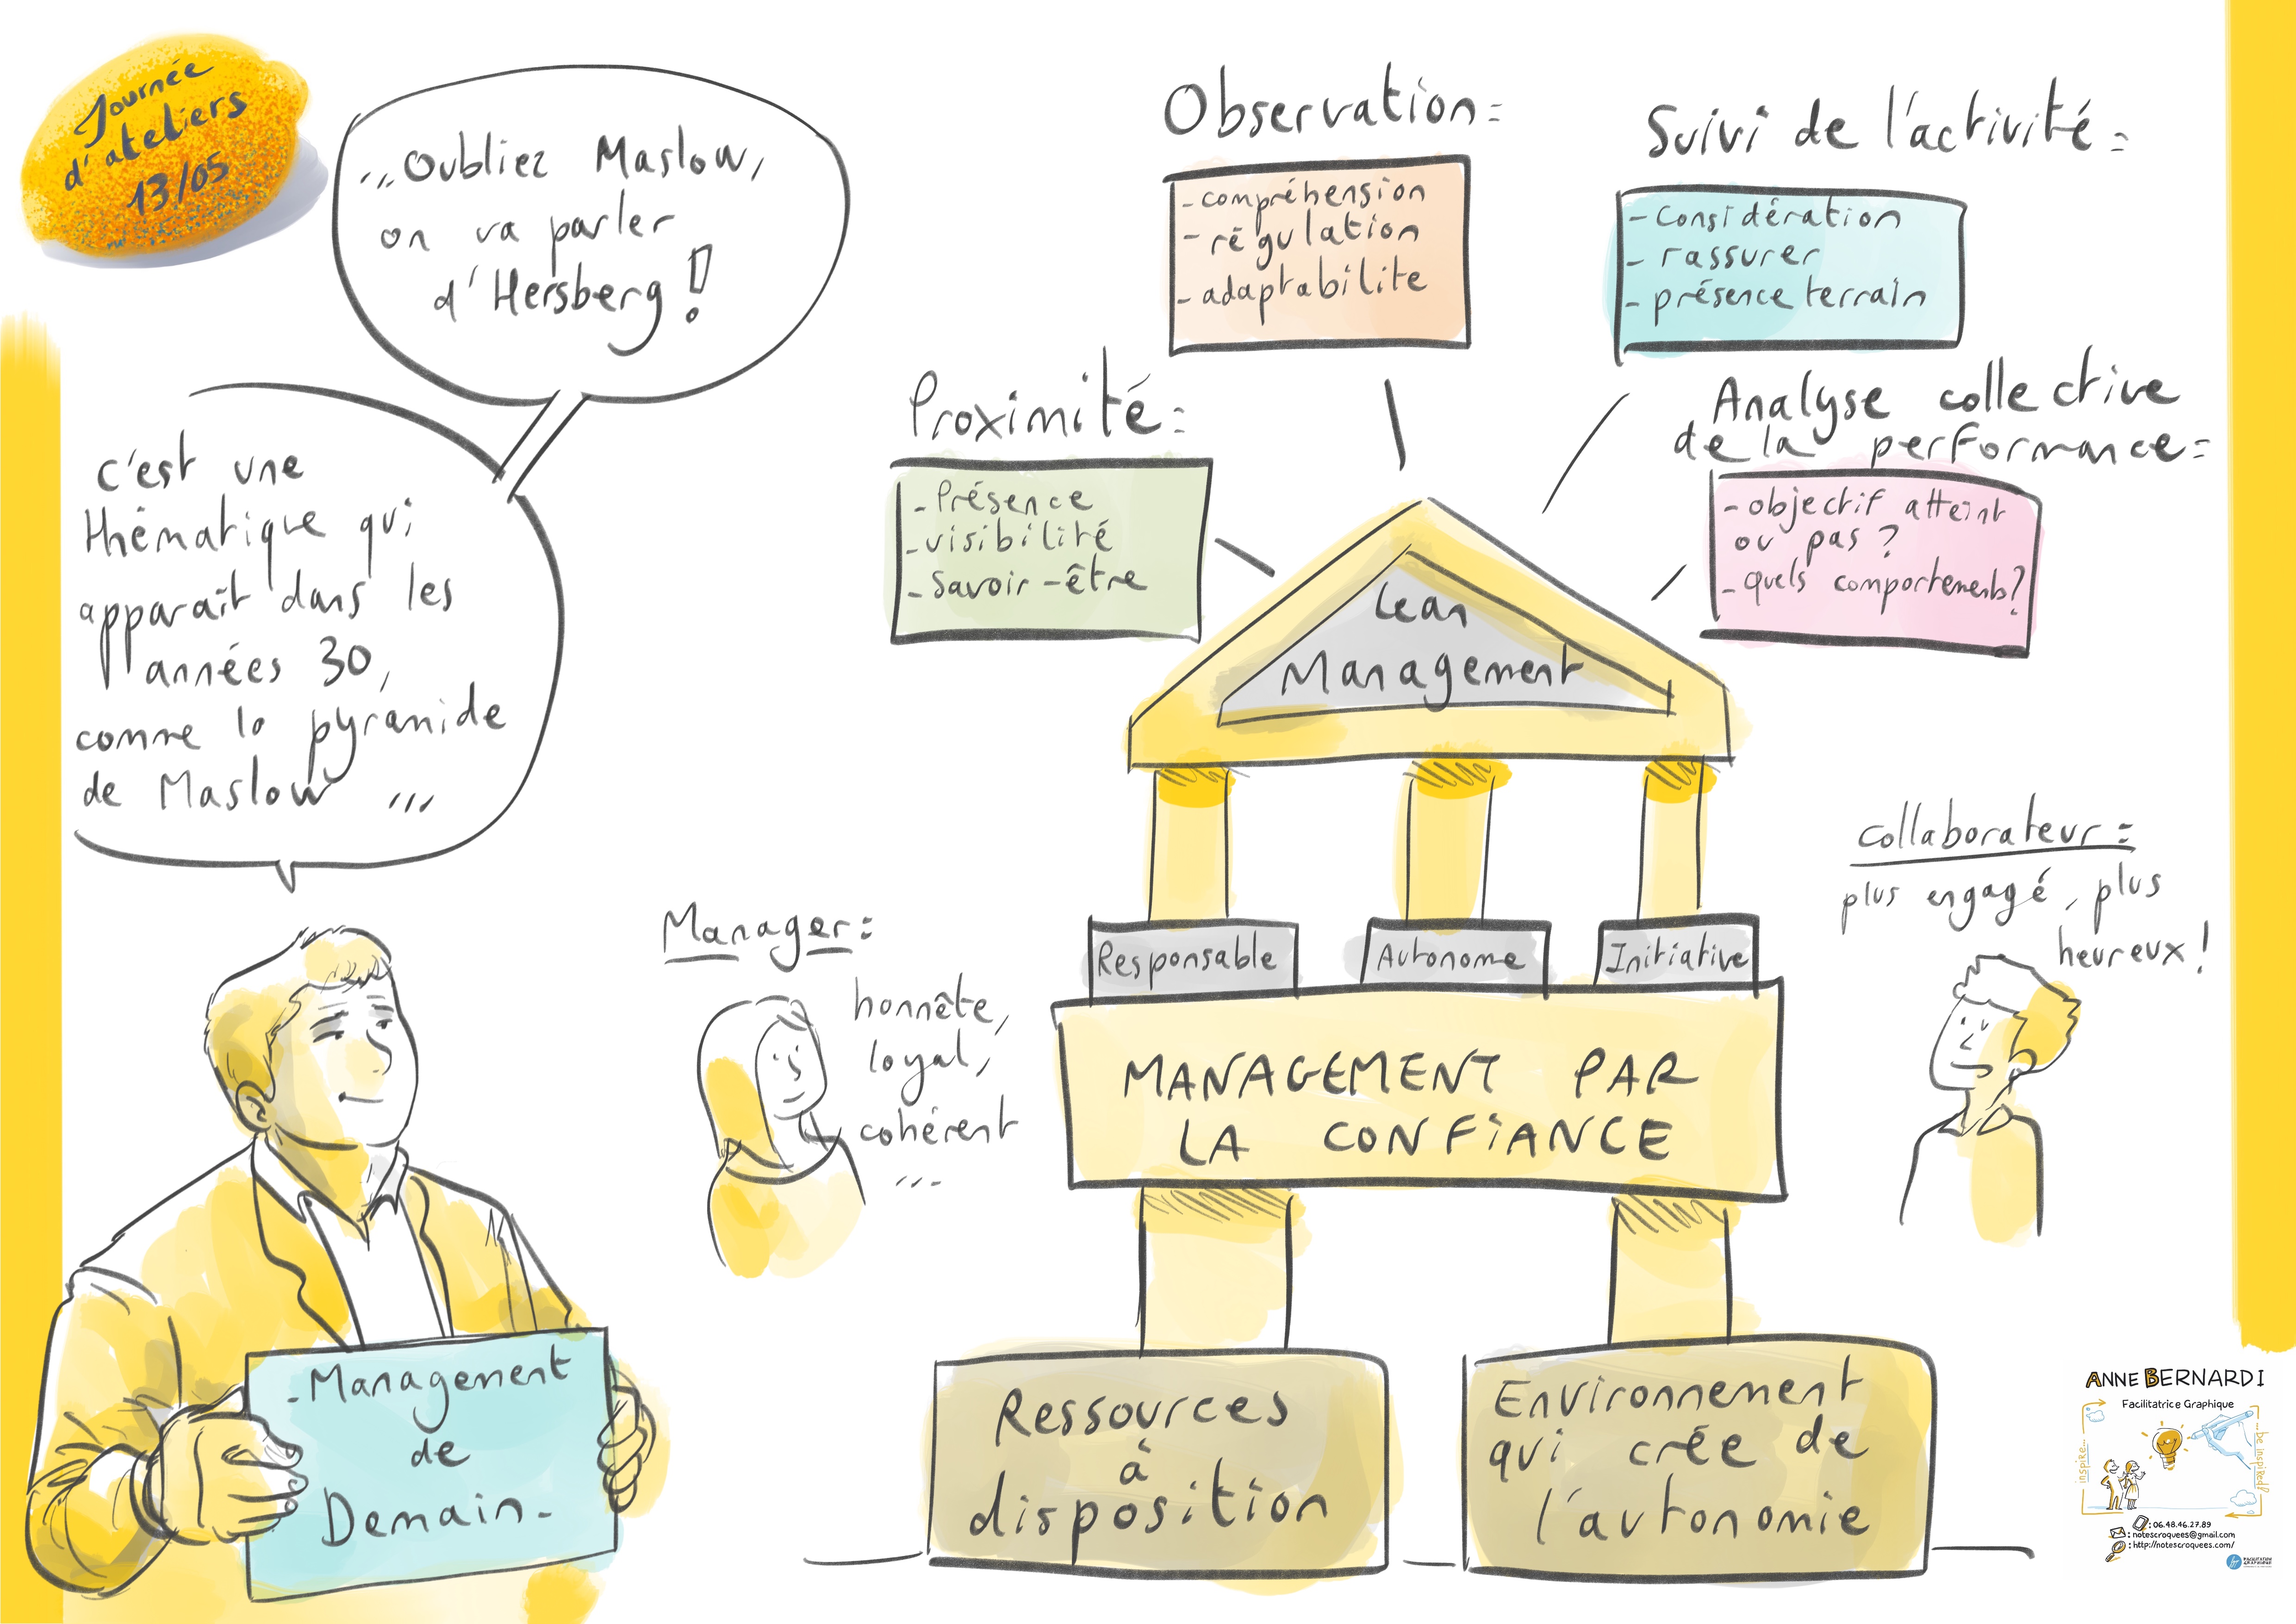 Journée
d'ateliers
13/05
c'est une
thématique qui
apparaît dans les
années 30,
comme la pyramide
de Maslow ...
...Oubliez Maslow,
on va parler
d'Hersberg !
- Management
de
Demain -
Manager :
honnête,
loyal,
cohérent
...
Proximité =
- Présence
- visibilité
- Savoir-être
Observation =
- compréhension
- régulation
- adaptabilite
Suivi de l'activité =
- Considération
- rassurer
- présence terrain
Analyse collective
de la performance =
- objectif atteint
ou pas ?
- quels comportements ?
Lean
Management
Responsable
Autonome
Initiative
MANAGEMENT PAR
LA CONFIANCE
Ressources
à
disposition
Environnement
qui crée de
l'autonomie
collaborateur =
plus engagé, plus
heureux !
ANNE BERNARDI
Facilitatrice Graphique
inspire...
...be inspired!
: 06.48.46.27.89
: notescroquees@gmail.com
: http://notescroquees.com/